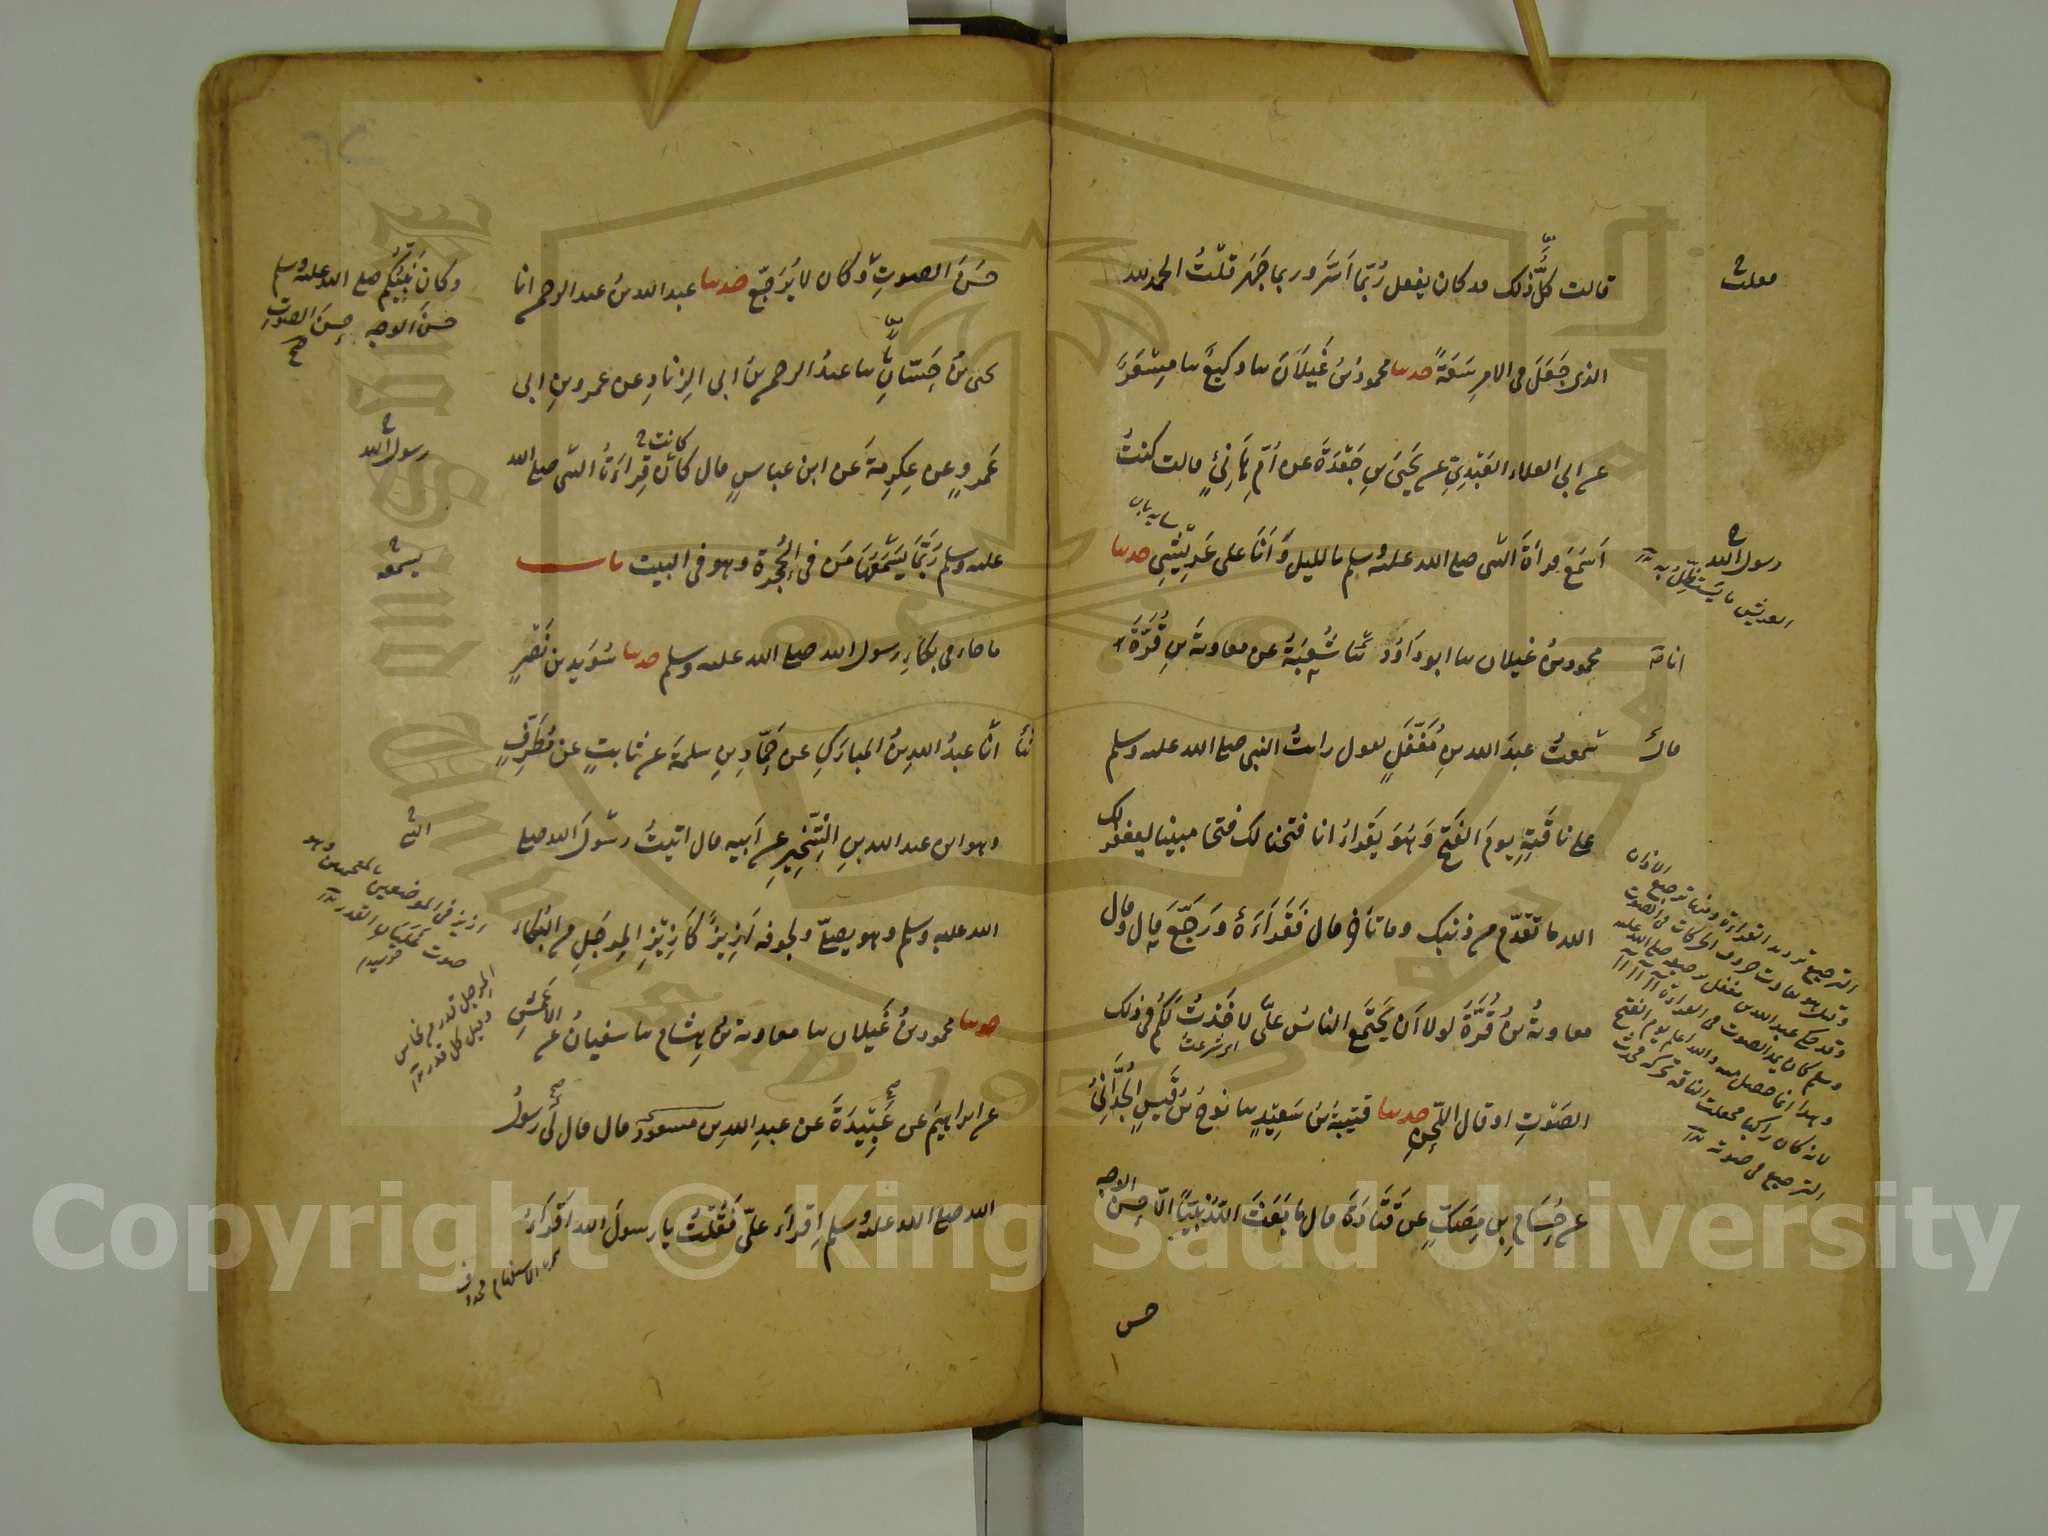 قالت كُلُّ ذٰلك قد كان يفعل رُبَّمَا اَسَرَّ وربما جَهَرَ قُلْتُ الحمد لله
فقلت
الذى جَعَلَ فى الامرِ سَعَةً حدثنا محمودُ بنُ غَيْلَانَ ثنا وكيعٌ ثنا مِسْعَرٌ
عن ابى العلاء العَبْدِىِّ عن يَحْيَى بنِ جَعْدَةَ عن اُمِّ هَانِئٍ قالت كنتُ
اَسْمَعُ قراءةَ النبى صلى الله عليه وسلم بالليل وَاَنَا على عَرِيْشِى حدثنا
رسول الله
العريش ما يستظل به
محمود بنُ غيلان ثنا ابو دَاوُدَ ثنا شُعْبَةُ عن معاوية بنِ قُرَّةَ
انا
سَمعتُ عبدَ الله بنِ مُغَفَّلٍ يقول رايتُ النبى صلى الله عليه وسلم
قال
على ناقَتِهِ يومَ الفَتْحِ وَهُوَ يَقْرَاءُ انا فتحنا لك فتحا مبينا ليغفر لك
الله ما تقدّم من ذنبك وما تأخر قال فَقَرَاَءَهُ وَرَجَّعَ قال وقال
معاويةُ بنُ قُرَّةَ لولا اَن يَجْتَمِعَ الناسُ علَىَّ لاَخَذْتُ لَكُمْ فى ذلك
الصَوْتِ او قال اللَّحْنِ حدثنا قتيبةُ بنُ سَعِيْدٍ ثنا نوحُ بنُ قَيْسٍ الحُدَّانِىُّ
عن حُسَامِ بنِ مِصَكٍّ عن قَتَادَةَ قال مَا بَعَثَ اللهُ نَبِيًّا الّا حَسَنَ الوجه
حس
حَسَنَ الصوتِ وكان لا يُرَجِّعُ حدثنا عبد الله بنُ عبد الرحمن انا
وكان نَبِيُّكُم صلى الله عليه وسلم
حسنَ الوجه حسنَ الصوتِ
صح
يحيى بنُ حَسّانٍ ثنا عبدُ الرحمن بنُ ابى الزنادِ عن عمرو بنِ ابى
عَمْرٍو عن عِكْرِمَةَ عن ابن عباسٍ قال كان قِرَاءَةُ النبى صلى الله
كانت
رسول الله
عليه وسلم رُبَّمَا يَسْمَعُهَا مَن فى الحُجْرَةِ وهو فى البيت باب
يسمعه
ما جاء فى بكاءِ رسول الله صلى الله عليه وسلم حدثنا سُوَيد بن نَصْرٍ
ثنا انا عبدُ اللهِ بنُ المبارَكِ عن حَمَّادِ بنِ سلمةَ عن ثابتٍ عن مُطَرِّفٍ
وهو ابن عبد الله بنِ الشِّخِّيرِ عن اَبيه قال اتيتُ رسُولَ الله صلى
النبى
الله عليه وسلم وهو يصلّى ولجوفه اَزِيزٌ كَاَزِيْزِ المِرجَلِ من البُكَاءِ
المرجل قدر من نحاس
وقيل كل قدر
حدثنا محمود بنُ غَيْلان ثنا معاوية بنُ هِشام ثنا سفيانُ عن الاَعْمَشِ
عن ابراهيمَ عن عَبِيْدَةَ عن عبدِ اللهِ بن مسعودٍ قال قال لِى رسولُ
الله صلى الله عليه وسلم اِقراَء علىَّ فَقُلْتُ يا رسولَ الله اَقْرَاءُ
همزة الاستفهام محذوف
Copyright © King Saud University